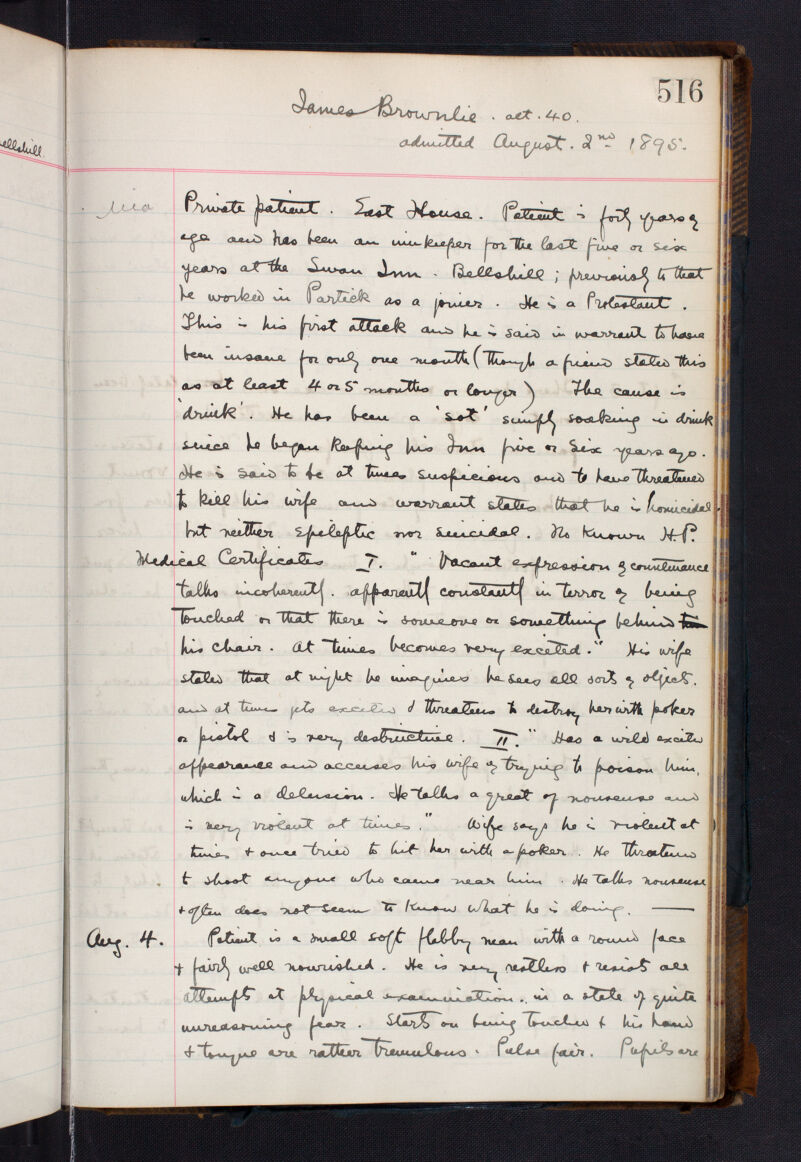 516
James Brownlie. aet. 40.
admitted August. 2nd 1895.
ellshill.
Private patient. East House. Patient is forty years of
age and has been an innkeeper for the last five or six
years at the Swan Inn. Bellshill; previously to that
he worked in Partick as a joiner. He is a Protestant.
This is his first attack and he is said in warrant to have
been insane for only one month (though a friend stated this
as at least 4 or 5 months or longer) The cause is
'drink'. He has been a 'sot' simply soaking in drink
since he began keeping his Inn five or six years ago.
He is said to be at times suspicious and to have threatened
to kill his wife and warrant states that he is homicidal.
but neither epileptic nor suicidal. No known H.P.
Medical Certificates I. " Vacant expression of countenance
talks incoherently. apparently constantly in terror of being
touched or that there is someone or something behind
his chair. At times becomes very excited." His wife
states that at night he imagines he sees all sorts of objects.
and at times gets excited & threatens to destroy her with poker
or pistol & is very destructive. II. " Has a wild excited
appearance and accuses his wife of trying to poison him,
which is a delusion. He talks a great of nonsense and
is very violent at times." Wife says he is violent at
times & once tried to hit her with a poker. He threatened
to shoot anyone who came near him. He talks nonsense
& often does not seem to know what he is doing. —
Aug. 4. Patient is a small soft flabby man with a round face
& fairly well nourished. He is very restless & resists all
attempts at physical examination, in a state of quite
unreasoning fear. Starts on being touched & his hand
& tongue are rather tremulous. Pulse fair. Pupils are